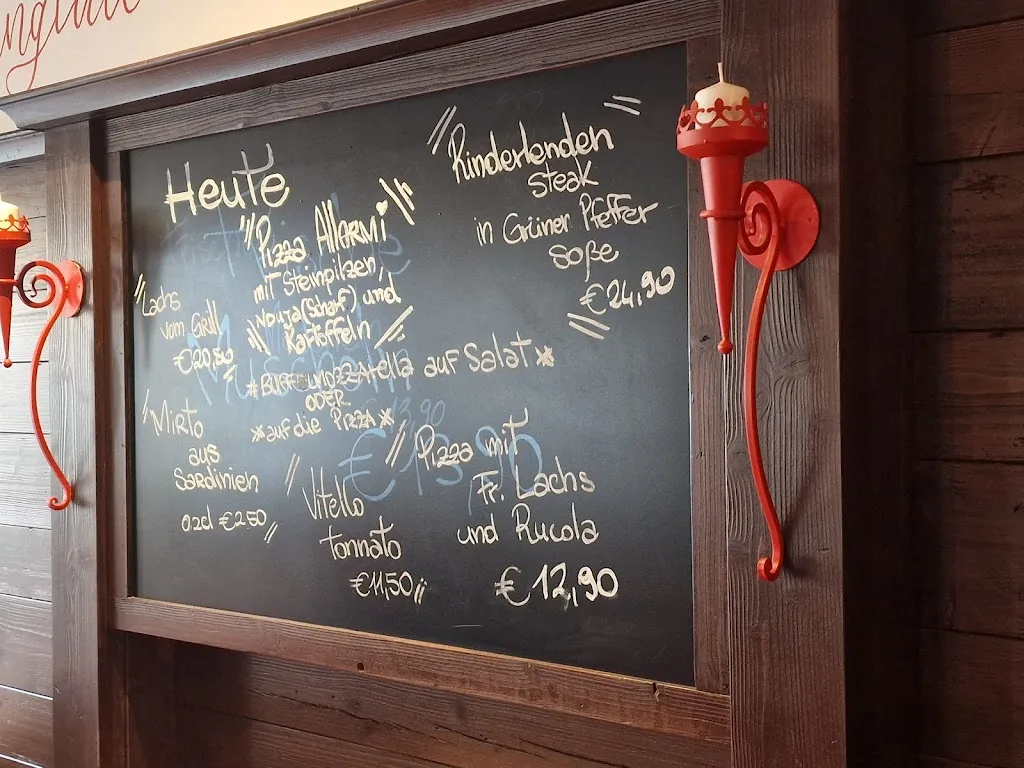 Heute
"Pizza Allarmi
mit Steinpilzen,
Nduja (scharf) und
Kartoffeln
"Rinderlenden
steak
in Grüner Pfeffer
soße
€24,90
Lachs
vom Grill
€20,90
*Buffelmozzarella auf Salat*
ODER
*auf die Pizza*
Mirto
aus
Sardinien
€2,50
Vitello
tonnato
€11,50
Pizza mit
Fr. Lachs
und Rucola
€12,90